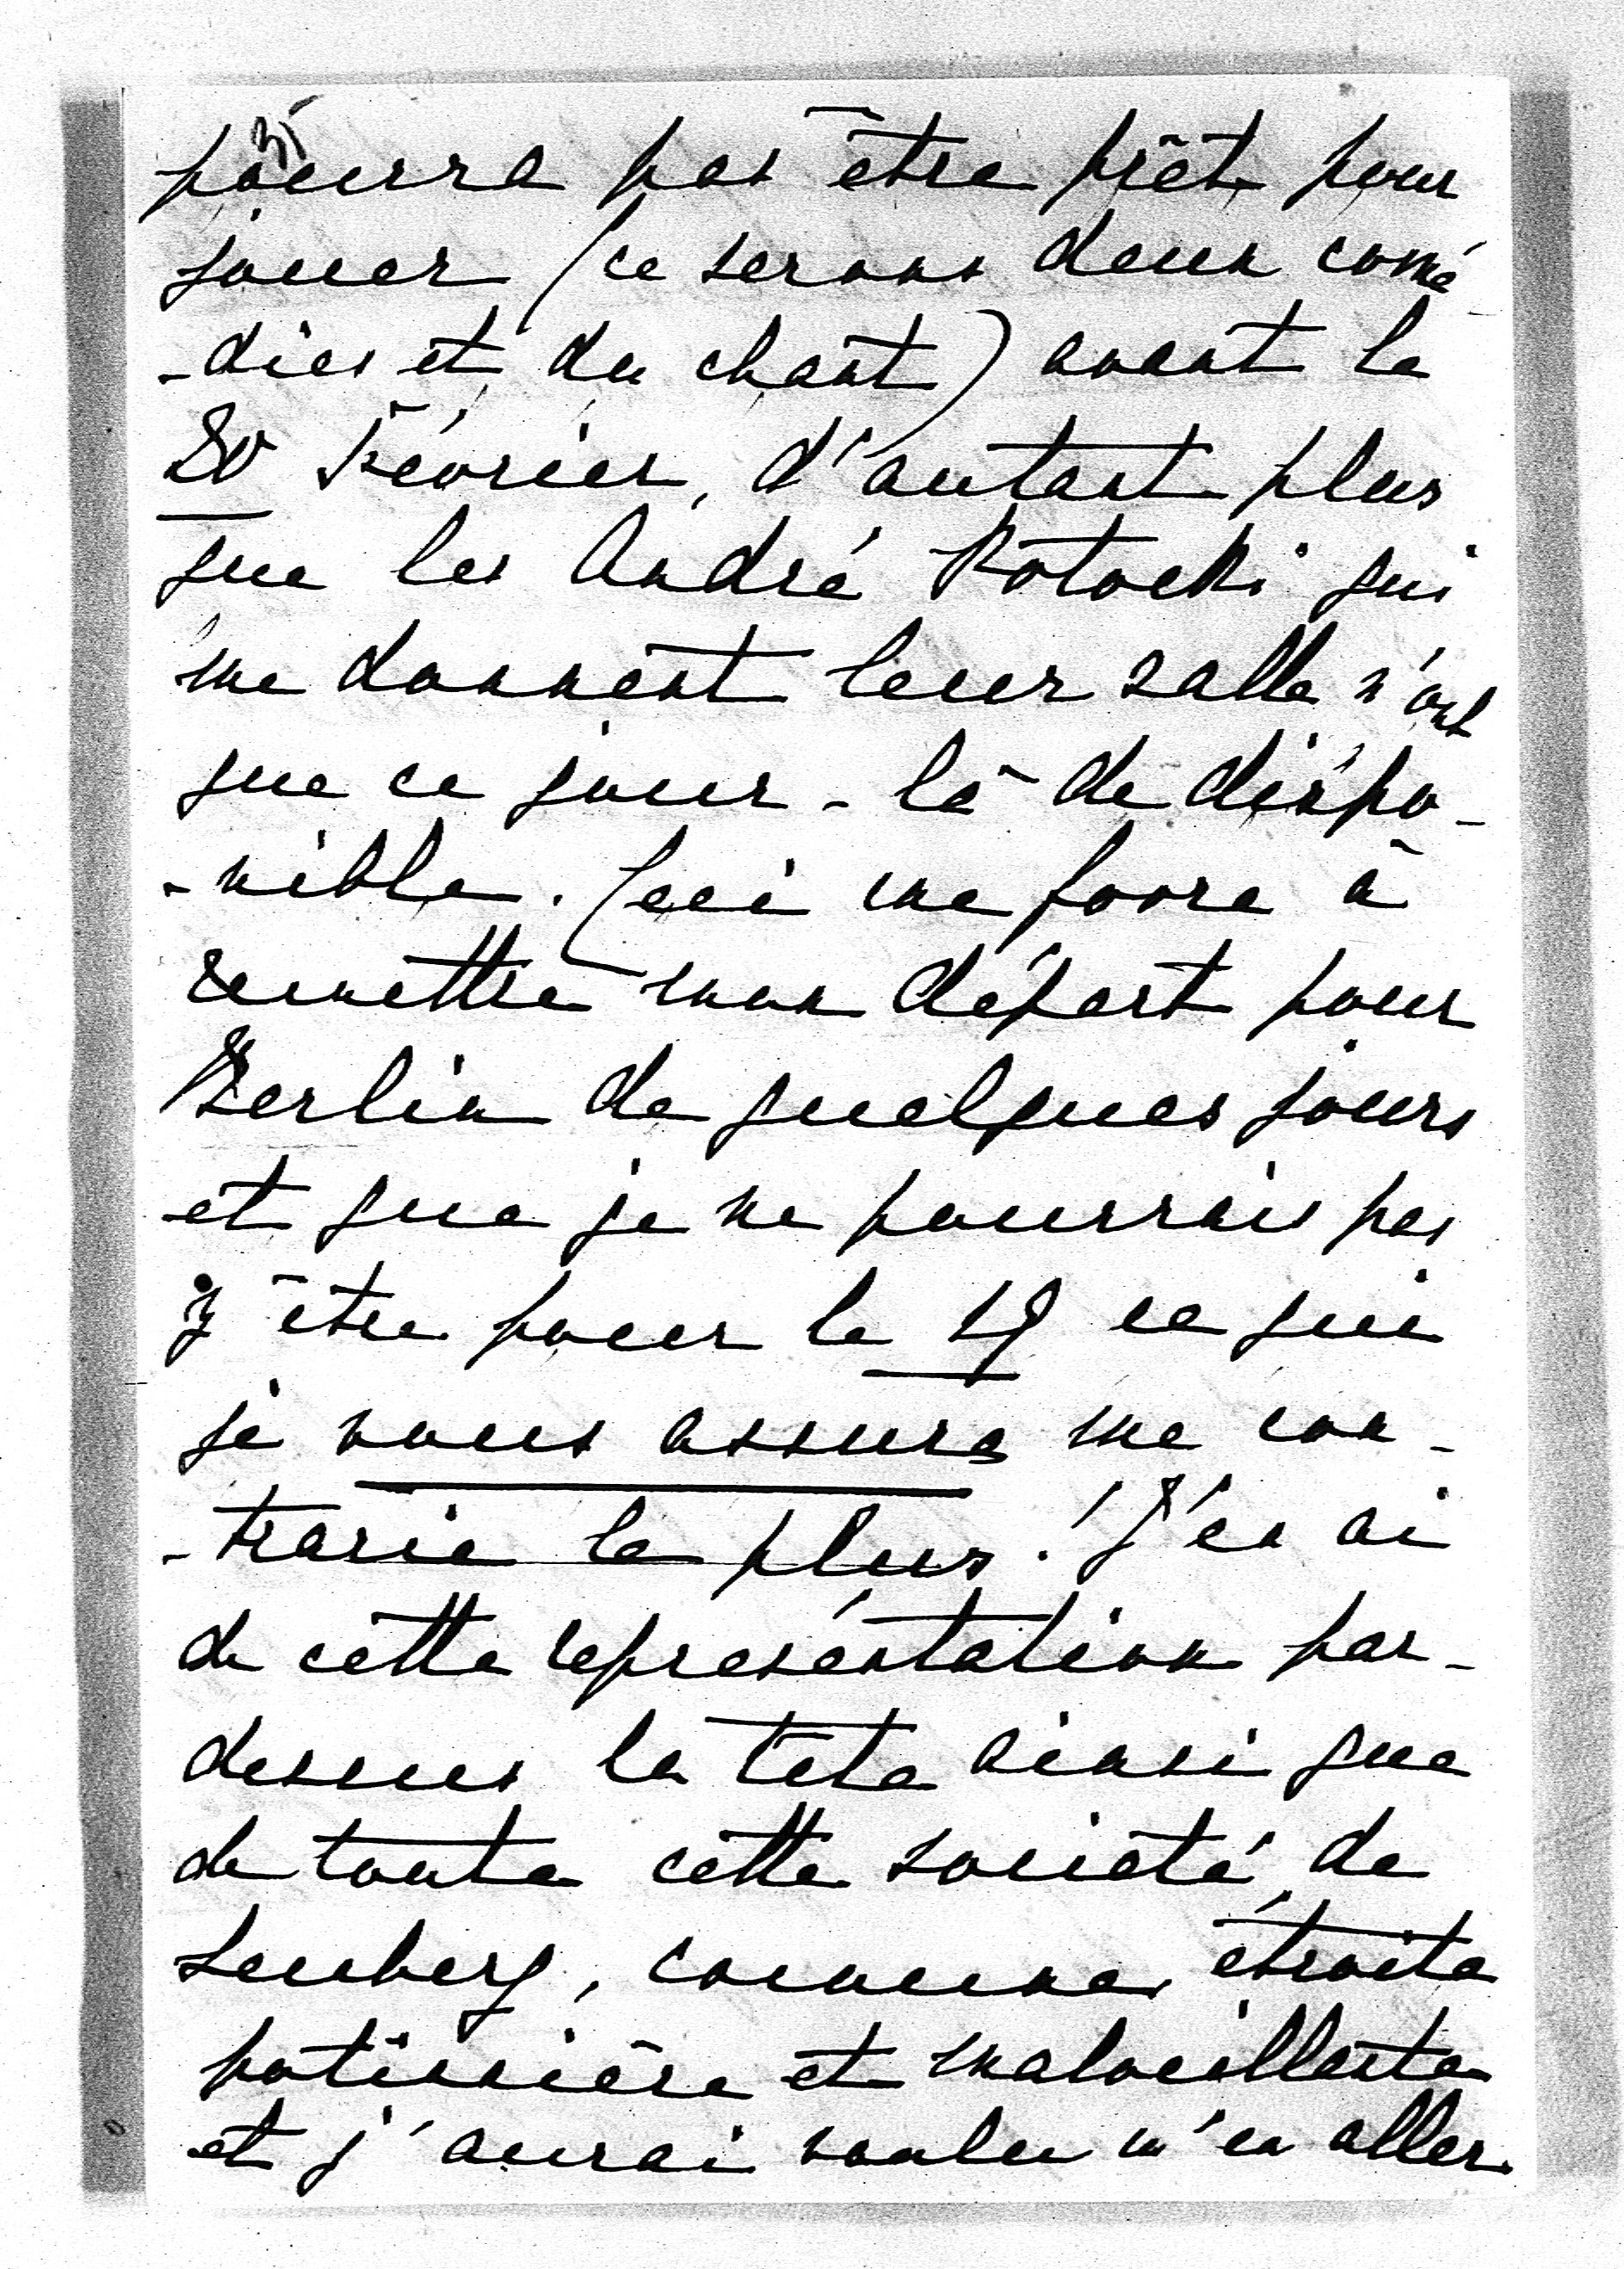 3)
pourra pas être prêt pour
jouer (ce serons deux comé
-dies et du chant) avant le
20 Février, d'autant plus
que les André Potocki qui
me donnent leur salle n'ont
que ce jour-là de dispo-
-nible. Ceci me force à
remettre mon départ pour
Berlin de quelques jours
et que je ne pourrais pas
y être pour le 19 ce qui
je vous assure me con-
-trarie le plus! J'en ai
de cette représentation par-
dessus la tête ainsi que
de toute cette société de
Lemberg, commune, étroite
potinière et malveillante
et j'aurai voulu m'en aller